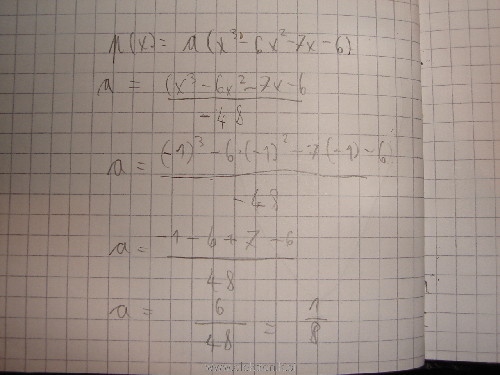 p(x) = a(x³ - 6x² - 7x - 6)
a = (x³ - 6x² - 7x - 6 / -48
a = (-1)³ - 6·(-1)² - 7(-1) - 6 / -48
a = -1 - 6 + 7 - 6 / 48
a = 6/48 = 1/8